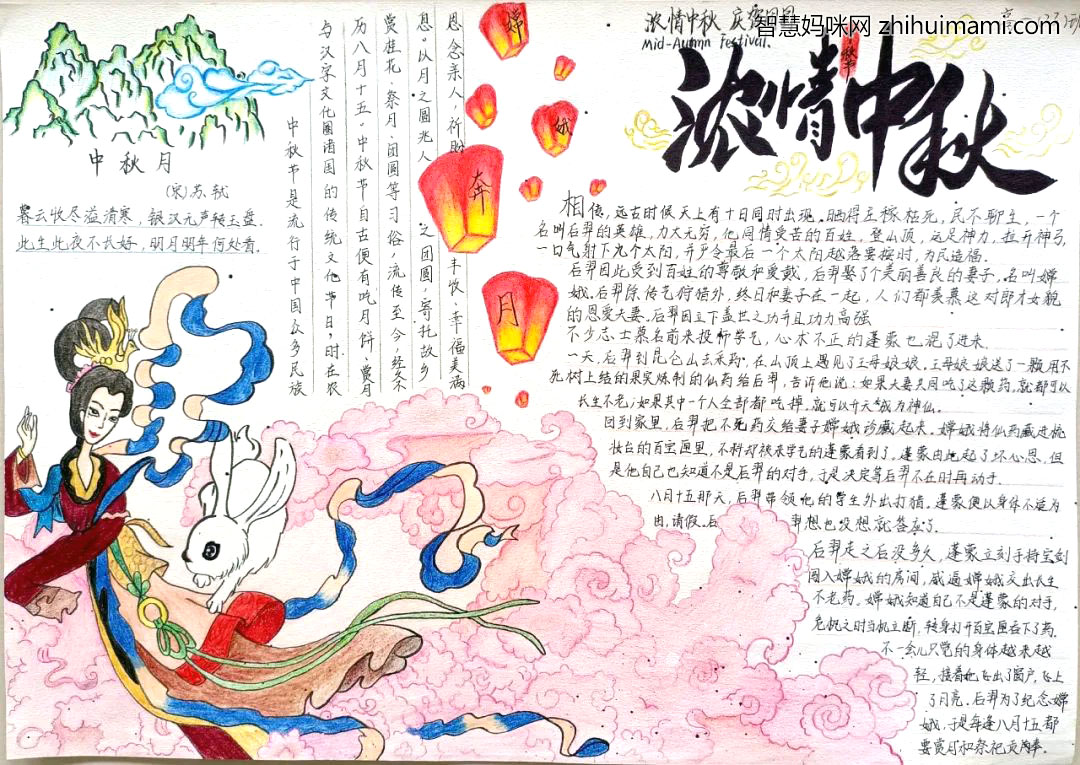 智慧妈咪网 zhihuimami.com
浓情中秋
Mid-Autmn Festival.
浓情中秋
中秋月
(宋)苏轼
暮云收尽溢清寒，银汉无声转玉盘.
此生此夜不长好，明月明年何处看.
嫦
娥
奔
月
中秋节是流行于中国众多民族
与汉字文化圈诸国的传统文化节日，时在农
历八月十五.中秋节自古便有吃月饼.赏月
赏桂花.祭月.团圆等习俗，流传至今，经久不
息.以月之圆兆人之团圆，寄托故乡
思念亲人，祈盼丰收，幸福美满
相传，远古时候天上有十日同时出现.晒得庄稼枯死，民不聊生，一个
名叫后羿的英雄，力大无穷，他同情受苦的百姓，登山顶，运足神力，拉开神弓，
一口气射下九个太阳，并严令最后一个太阳按时，为民造福.
后羿因此受到百姓的尊敬和爱戴，后羿娶了个美丽善良的妻子，名叫嫦
娥.后羿除传艺狩猎外，终日和妻子在一起，人们都羡慕这对郎才女貌
的恩爱夫妻.后羿因立下盖世之功并且功力高强
不少志士慕名前来投师学艺，心术不正的蓬蒙也混了进来.
一天，后羿到昆仑山去采药，在山顶上遇见了王母娘娘，王母娘娘送了一颗用不
死树上结的果实炼制的仙药给后羿，告诉他说：如果夫妻共同吃了这颗药，就都可以
长生不老；如果其中一个人全部都吃掉，就可以升天成为神仙.
回到家里，后羿把不死药交给妻子嫦娥珍藏起来.嫦娥将仙药藏进梳
妆台的百宝匣里，不料却被来学艺的蓬蒙看到了，蓬蒙由他起了坏心思，但
是他自己也知道不是后羿的对手，于是决定等后羿不在时再动手.
八月十五那天，后羿带领他的学生外出打猎，蓬蒙便以身体不适为
由，请假.后羿想也没想就答应了.
后羿走之后没多久，蓬蒙立刻手持宝剑
闯入嫦娥的房间，威逼嫦娥交出长生
不老药.嫦娥知道自己不是蓬蒙的对手，
危机之时当机立断，转身打开百宝匣吞下了药.
不一会儿只觉的身体越来越
轻，接着她飞出了窗户，飞上
了月亮.后羿为了纪念嫦
娥，于是每逢八月十五都
要赏月和祭祀